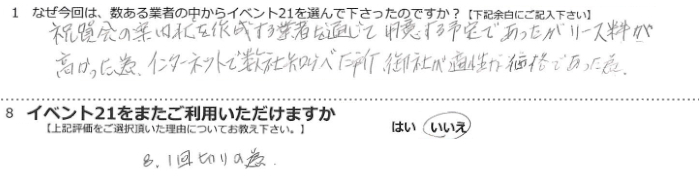 1 なぜ今回は、数ある業者の中からイベント21を選んで下さったのですか？【下記余白にご記入下さい】
祝賀会の案内状を作成する業者を通じて用意する予定であったがリース料が
高かった為、インターネットで数社調べた所、御社が適性な価格であった為。
8 イベント21をまたご利用いただけますか
【上記評価をご選択頂いた理由についてお教え下さい。】 はい いいえ
8. 1回切りの為.